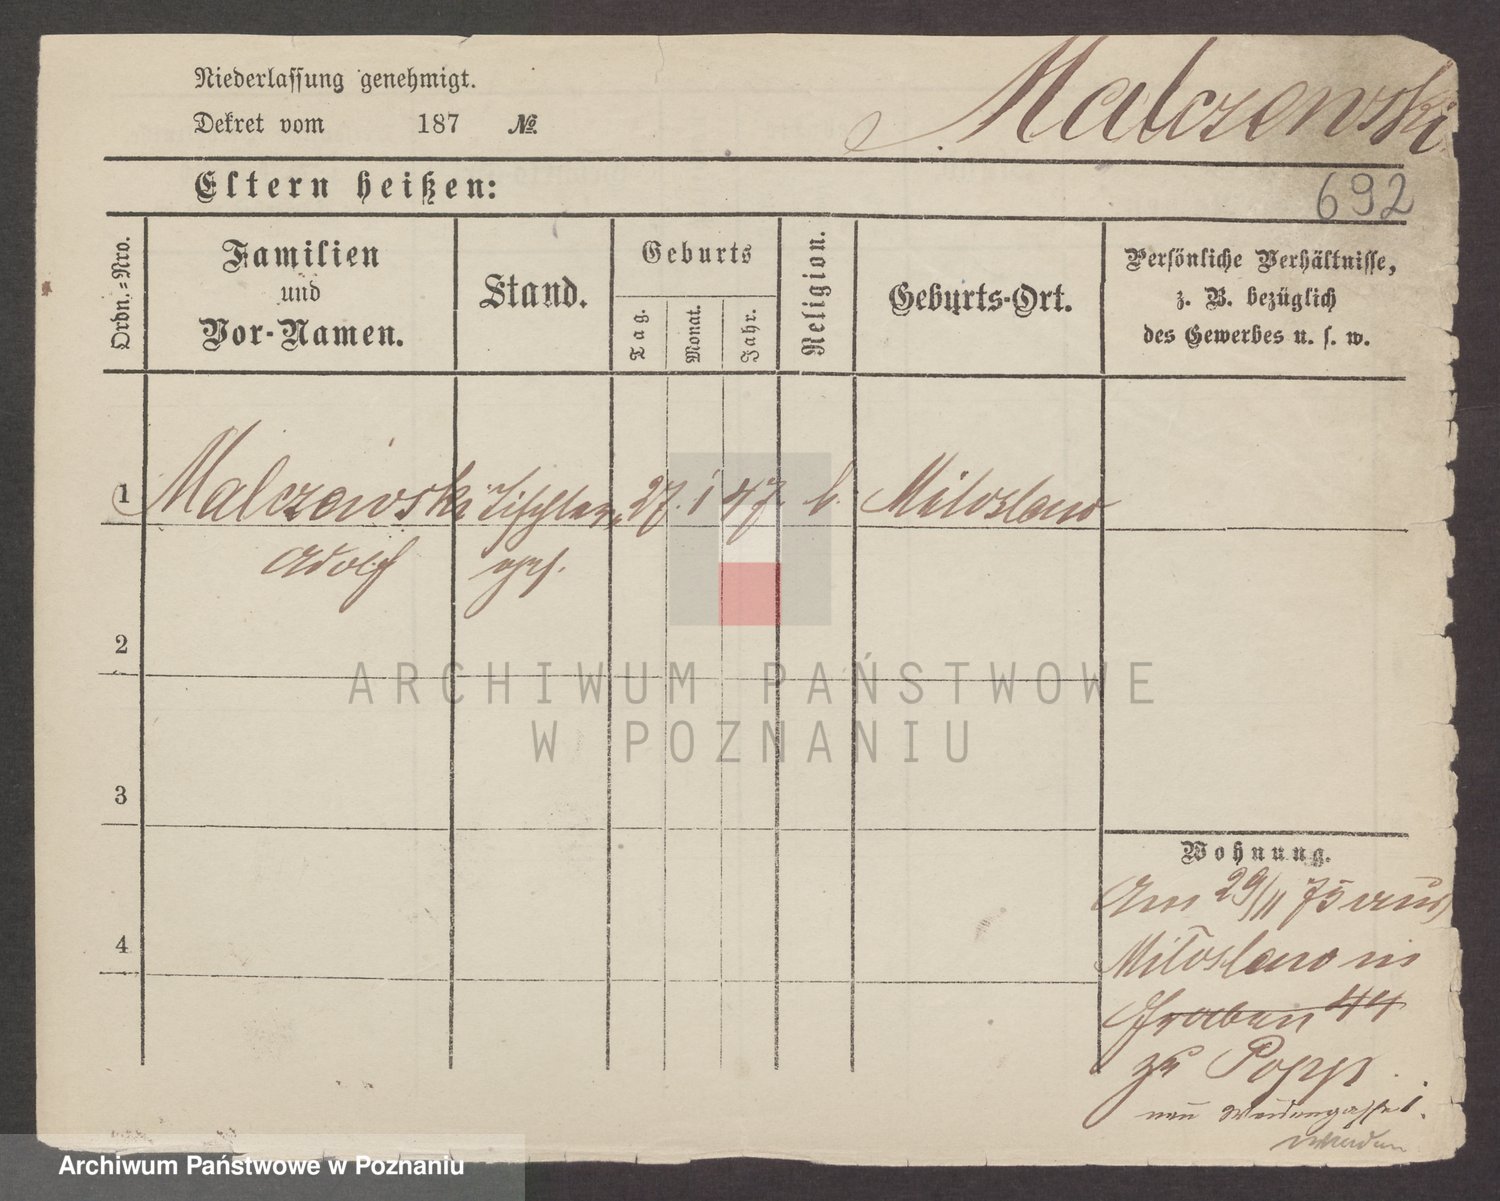 Niederlassung genehmigt.
Dekret vom 187 №
Malczewski
Eltern heißen:
692
Ordn.-Nro.
Familien
und
Vor-Namen.
Stand.
Geburts
Tag.
Monat.
Jahr.
Religion.
Geburts-Ort.
Persönliche Verhältnisse,
z. B. bezüglich
des Gewerbes u. s. w.
1 Malczewski Tischler 27. 1 47 k. Miloslaw
Adolf ges.
2
3
4
Wohnung.
Am 29/11 75 aus
Miloslaw in
Graben 44
zu Popp
neu Weidengasse 1.
ARCHIWUM PAŃSTWOWE
W POZNANIU
Archiwum Państwowe w Poznaniu